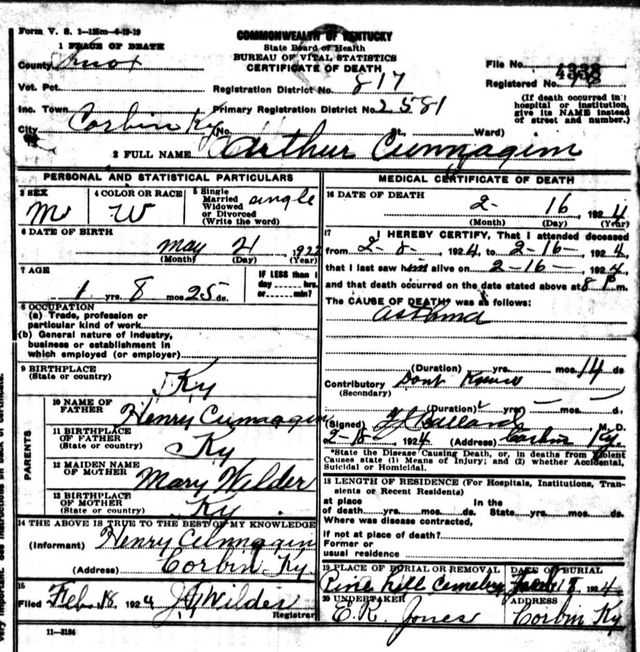 Form V. S. 1-125m-6-19-19
COMMONWEALTH OF KENTUCKY
State Board of Health
BUREAU OF VITAL STATISTICS
CERTIFICATE OF DEATH
1 PLACE OF DEATH
County Knox
Vot. Pct.
Inc. Town
City Corbin Ky (No.
St. Ward)
Registration District No. 817
Primary Registration District No. 2581
File No. 4338
Registered No.
(If death occurred in
hospital or institution,
give its NAME instead
of street and number.)
2 FULL NAME Arthur Cumnagim
PERSONAL AND STATISTICAL PARTICULARS
3 SEX
M
4 COLOR OR RACE
W
5 Single
Married
Widowed
or Divorced
(Write the word)
single
6 DATE OF BIRTH
May 21, 1922
(Month) (Day) (Year)
7 AGE
1 yrs. 8 mos. 25 ds.
IF LESS than 1
day hrs.
or min?
8 OCCUPATION
(a) Trade, profession or
particular kind of work
(b) General nature of industry,
business or establishment in
which employed (or employer)
9 BIRTHPLACE
(State or country)
Ky
PARENTS
10 NAME OF
FATHER
Henry Cumnagin
11 BIRTHPLACE
OF FATHER
(State or country)
Ky
12 MAIDEN NAME
OF MOTHER
Mary Wilder
13 BIRTHPLACE
OF MOTHER
(State or country)
Ky.
14 THE ABOVE IS TRUE TO THE BEST OF MY KNOWLEDGE
(Informant) Henry Cumnagin
(Address) Corbin Ky.
15
Filed Feb. 18 1924 J Wilder
Registrar
11-3184
MEDICAL CERTIFICATE OF DEATH
16 DATE OF DEATH
2- 16-, 1924
(Month) (Day) (Year)
17 I HEREBY CERTIFY, That I attended deceased
from 2-8-, 1924, to 2-16-, 1924,
that I last saw him alive on 2-16-, 1924,
and that death occurred on the date stated above at 8 P m.
The CAUSE OF DEATH* was as follows:
asthma
(Duration) yrs. mos. 14 ds
Contributory Dont Know
(Secondary)
(Duration) yrs. mos. d.
(Signed) M. D.
2-18- 1924 (Address) Corbin Ky.
*State the Disease Causing Death, or, in deaths from Violent
Causes state (1) Means of Injury; and (2) whether Accidental,
Suicidal or Homicidal.
18 LENGTH OF RESIDENCE (For Hospitals, Institutions, Tran-
sients or Recent Residents)
At place In the
of death yrs. mos. ds. State yrs. mos. ds.
Where was disease contracted,
if not at place of death?
Former or
usual residence
19 PLACE OF BURIAL OR REMOVAL
Pine Hill Cemetery
DATE OF BURIAL
18, 1924
20 UNDERTAKER
E. R. Jones
ADDRESS
Corbin Ky